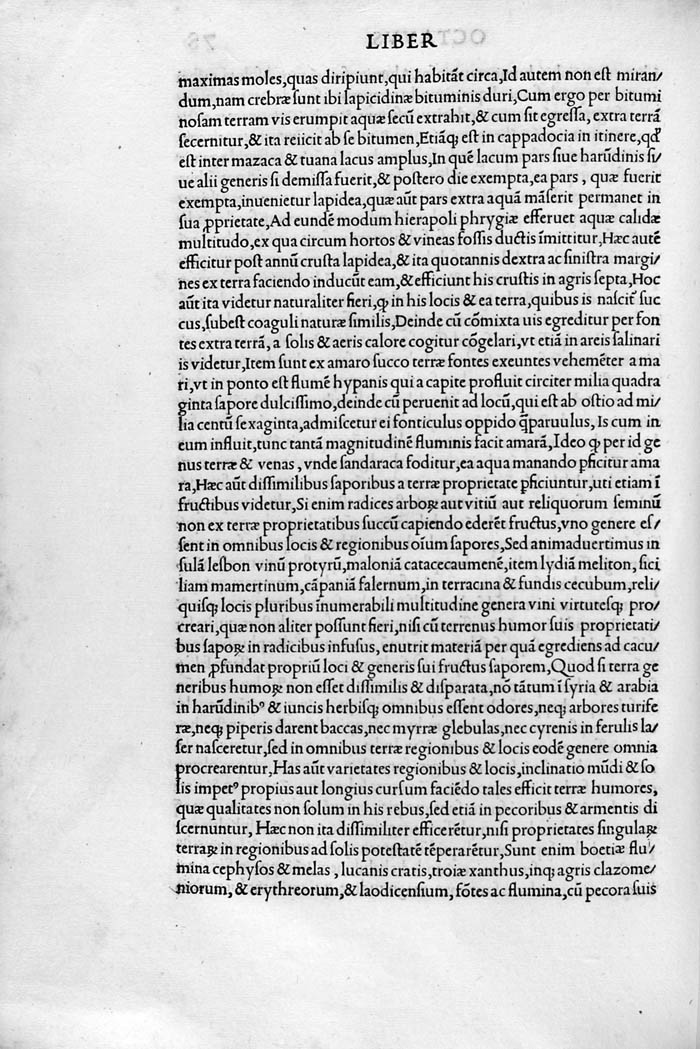 LIBER
maximas moles,quas diripiunt,qui habitāt circa,Id autem non eſt miran/
dum,nam crebræ ſunt ibi lapicidinæ bituminis duri,Cum ergo per bitumi
noſam terram vis erumpit aquæ ſecū extrahit,& cum ſit egreſſa, extra terrā
ſecernitur,& ita reiicit ab ſe bitumen,Etiāqȝ eſt in cappadocia in itinere,qd̄
eſt inter mazaca & tuana lacus amplus,In quē lacum pars ſiue harūdinis ſi/
ue alii generis ſi demiſſa fuerit,& poſtero die exempta,ea pars , quæ fuerit
exempta,inuenietur lapidea,quæ aūt pars extra aquā māſerit permanet in
ſua ꝓprietate,Ad eundē modum hierapoli phrygiæ efferuet aquæ calidæ
multitudo,ex qua circum hortos & vineas foſſis ductis īmittitur,Hæc autē
efficitur poſt annū cruſta lapidea,& ita quotannis dextra ac ſiniſtra margi/
nes ex terra faciendo inducūt eam,& efficiunt his cruſtis in agris ſepta,Hoc
aūt ita videtur naturaliter fieri,ꝙ in his locis & ea terra,quibus is naſcit᷑ ſuc
cus,ſubeſt coaguli naturæ ſimilis,Deinde cū cōmixta uis egreditur per fon
tes extra terrā, a ſolis & aeris calore cogitur cōgelari,vt etiā in areis ſalinari
is videtur,Item ſunt ex amaro ſucco terræ fontes exeuntes vehemēter a ma
ri,vt in ponto eſt flumē hypanis qui a capite profluit circiter milia quadra
ginta ſapore dulciſſimo,deinde cū peruenit ad locū,qui eſt ab oſtio ad mi/
lia centū ſexaginta,admiſcetur ei fonticulus oppido q̄ꝑuulus, Is cum in
eum influit,tunc tantā magnitudinē fluminis facit amarā,Ideo ꝙ per id ge
nus terræ & venas , vnde ſandaraca foditur,ea aqua manando ꝑficitur ama
ra,Hæc aūt diſſimilibus ſaporibus a terræ proprietate ꝑficiuntur,uti etiam ī
fructibus videtur,Si enim radices arboꝝ aut vitiū aut reliquorum ſeminū
non ex terræ proprietatibus ſuccū capiendo ederēt fructus,vno genere eſ/
ſent in omnibus locis & regionibus oīum ſapores,Sed animaduertimus in
ſulā leſbon vinū protyrū,maloniā catacecaumenē,item lydiā meliton, ſici
liam mamertinum,cāpaniā falernum,in terracina & fundis cecubum,reli/
quiſqȝ locis pluribus īnumerabili multitudine genera vini virtuteſqȝ pro/
creari,quæ non aliter poſſunt fieri,niſi cū terrenus humor ſuis proprietati/
bus ſapoꝝ in radicibus infuſus, enutrit materiā per quā egrediens ad cacu/
men ꝓfundat propriū loci & generis ſui fructus ſaporem,Quod ſi terra ge
neribus humoꝝ non eſſet diſſimilis & diſparata,nō tātum ī ſyria & arabia
in harūdinibꝰ & iuncis herbiſqȝ omnibus eſſent odores,neqȝ arbores turife
ræ,neqȝ piperis darent baccas,nec myrræ glebulas,nec cyrenis in ferulis la/
ſer naſceretur,ſed in omnibus terræ regionibus & locis eodē genere omnia
procrearentur,Has aūt varietates regionibus & locis,inclinatio mūdi & ſo
lis impetꝰ propius aut longius curſum faciēdo tales efficit terræ humores,
quæ qualitates non ſolum in his rebus,ſed etiā in pecoribus & armentis di
ſcernuntur, Hæc non ita diſſimiliter efficerētur,niſi proprietates ſingulaꝝ
terraꝝ in regionibus ad ſolis poteſtatē tēperarētur,Sunt enim boetiæ flu/
mina cephyſos & melas , lucanis cratis,troiæ xanthus,inqȝ agris clazome/
niorum, & erythreorum,& laodicenſium, fōtes ac flumina,cū pecora ſuis